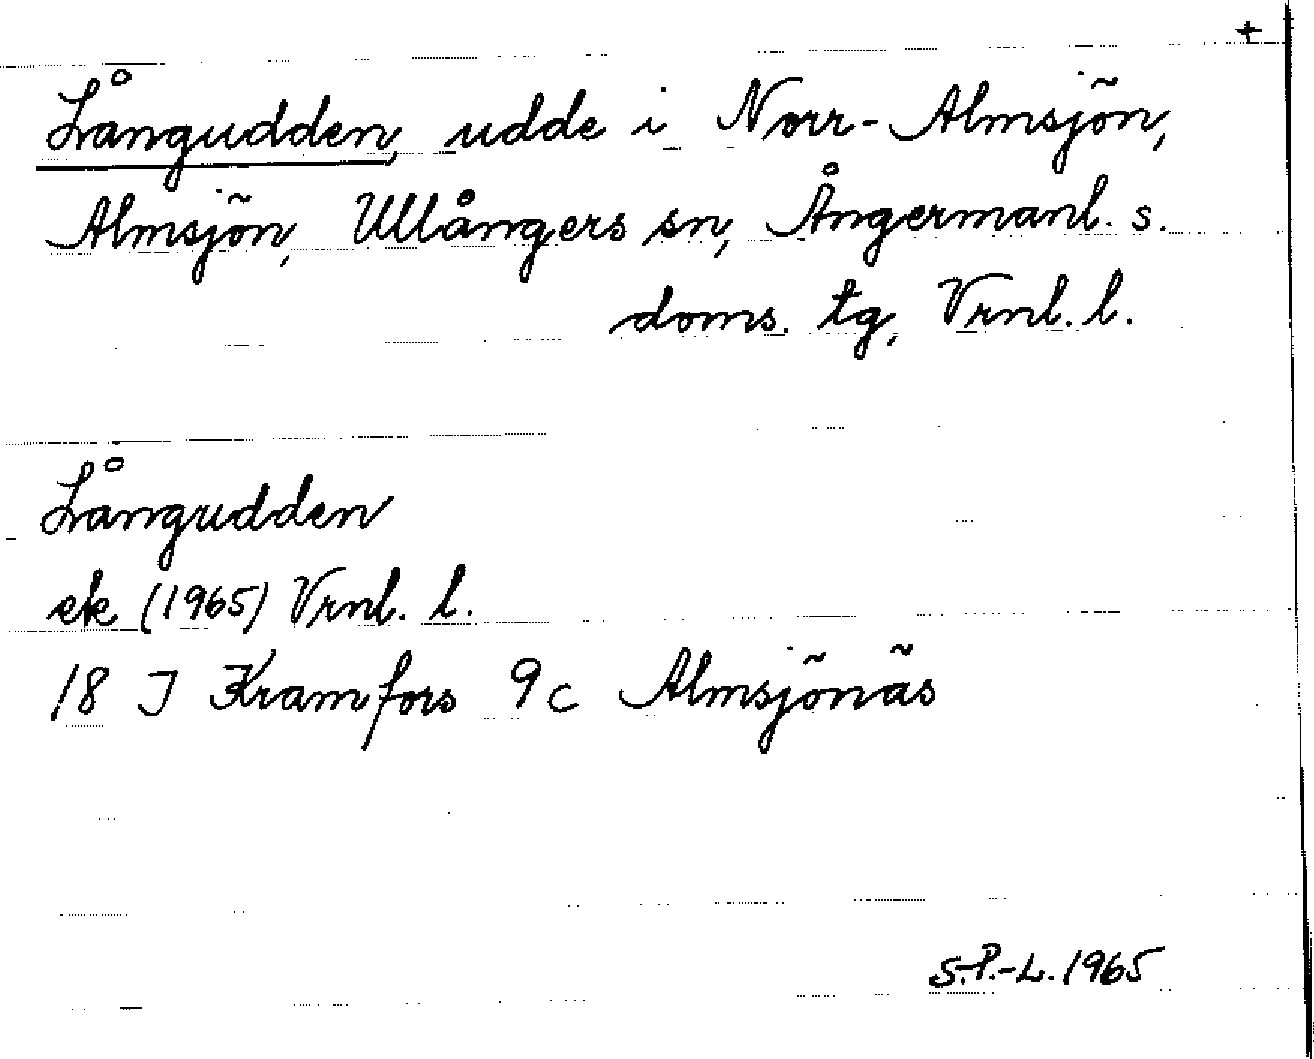 +
Långudden, udde i Norr-Almsjön,
Almsjön, Ullångers sn, Ångermanl. s.
doms. tg, Vrnl. l.
Långudden
ek (1965) Vrnl. l.
18 J Kramfors 9c Almsjönäs
S.P.-L. 1965